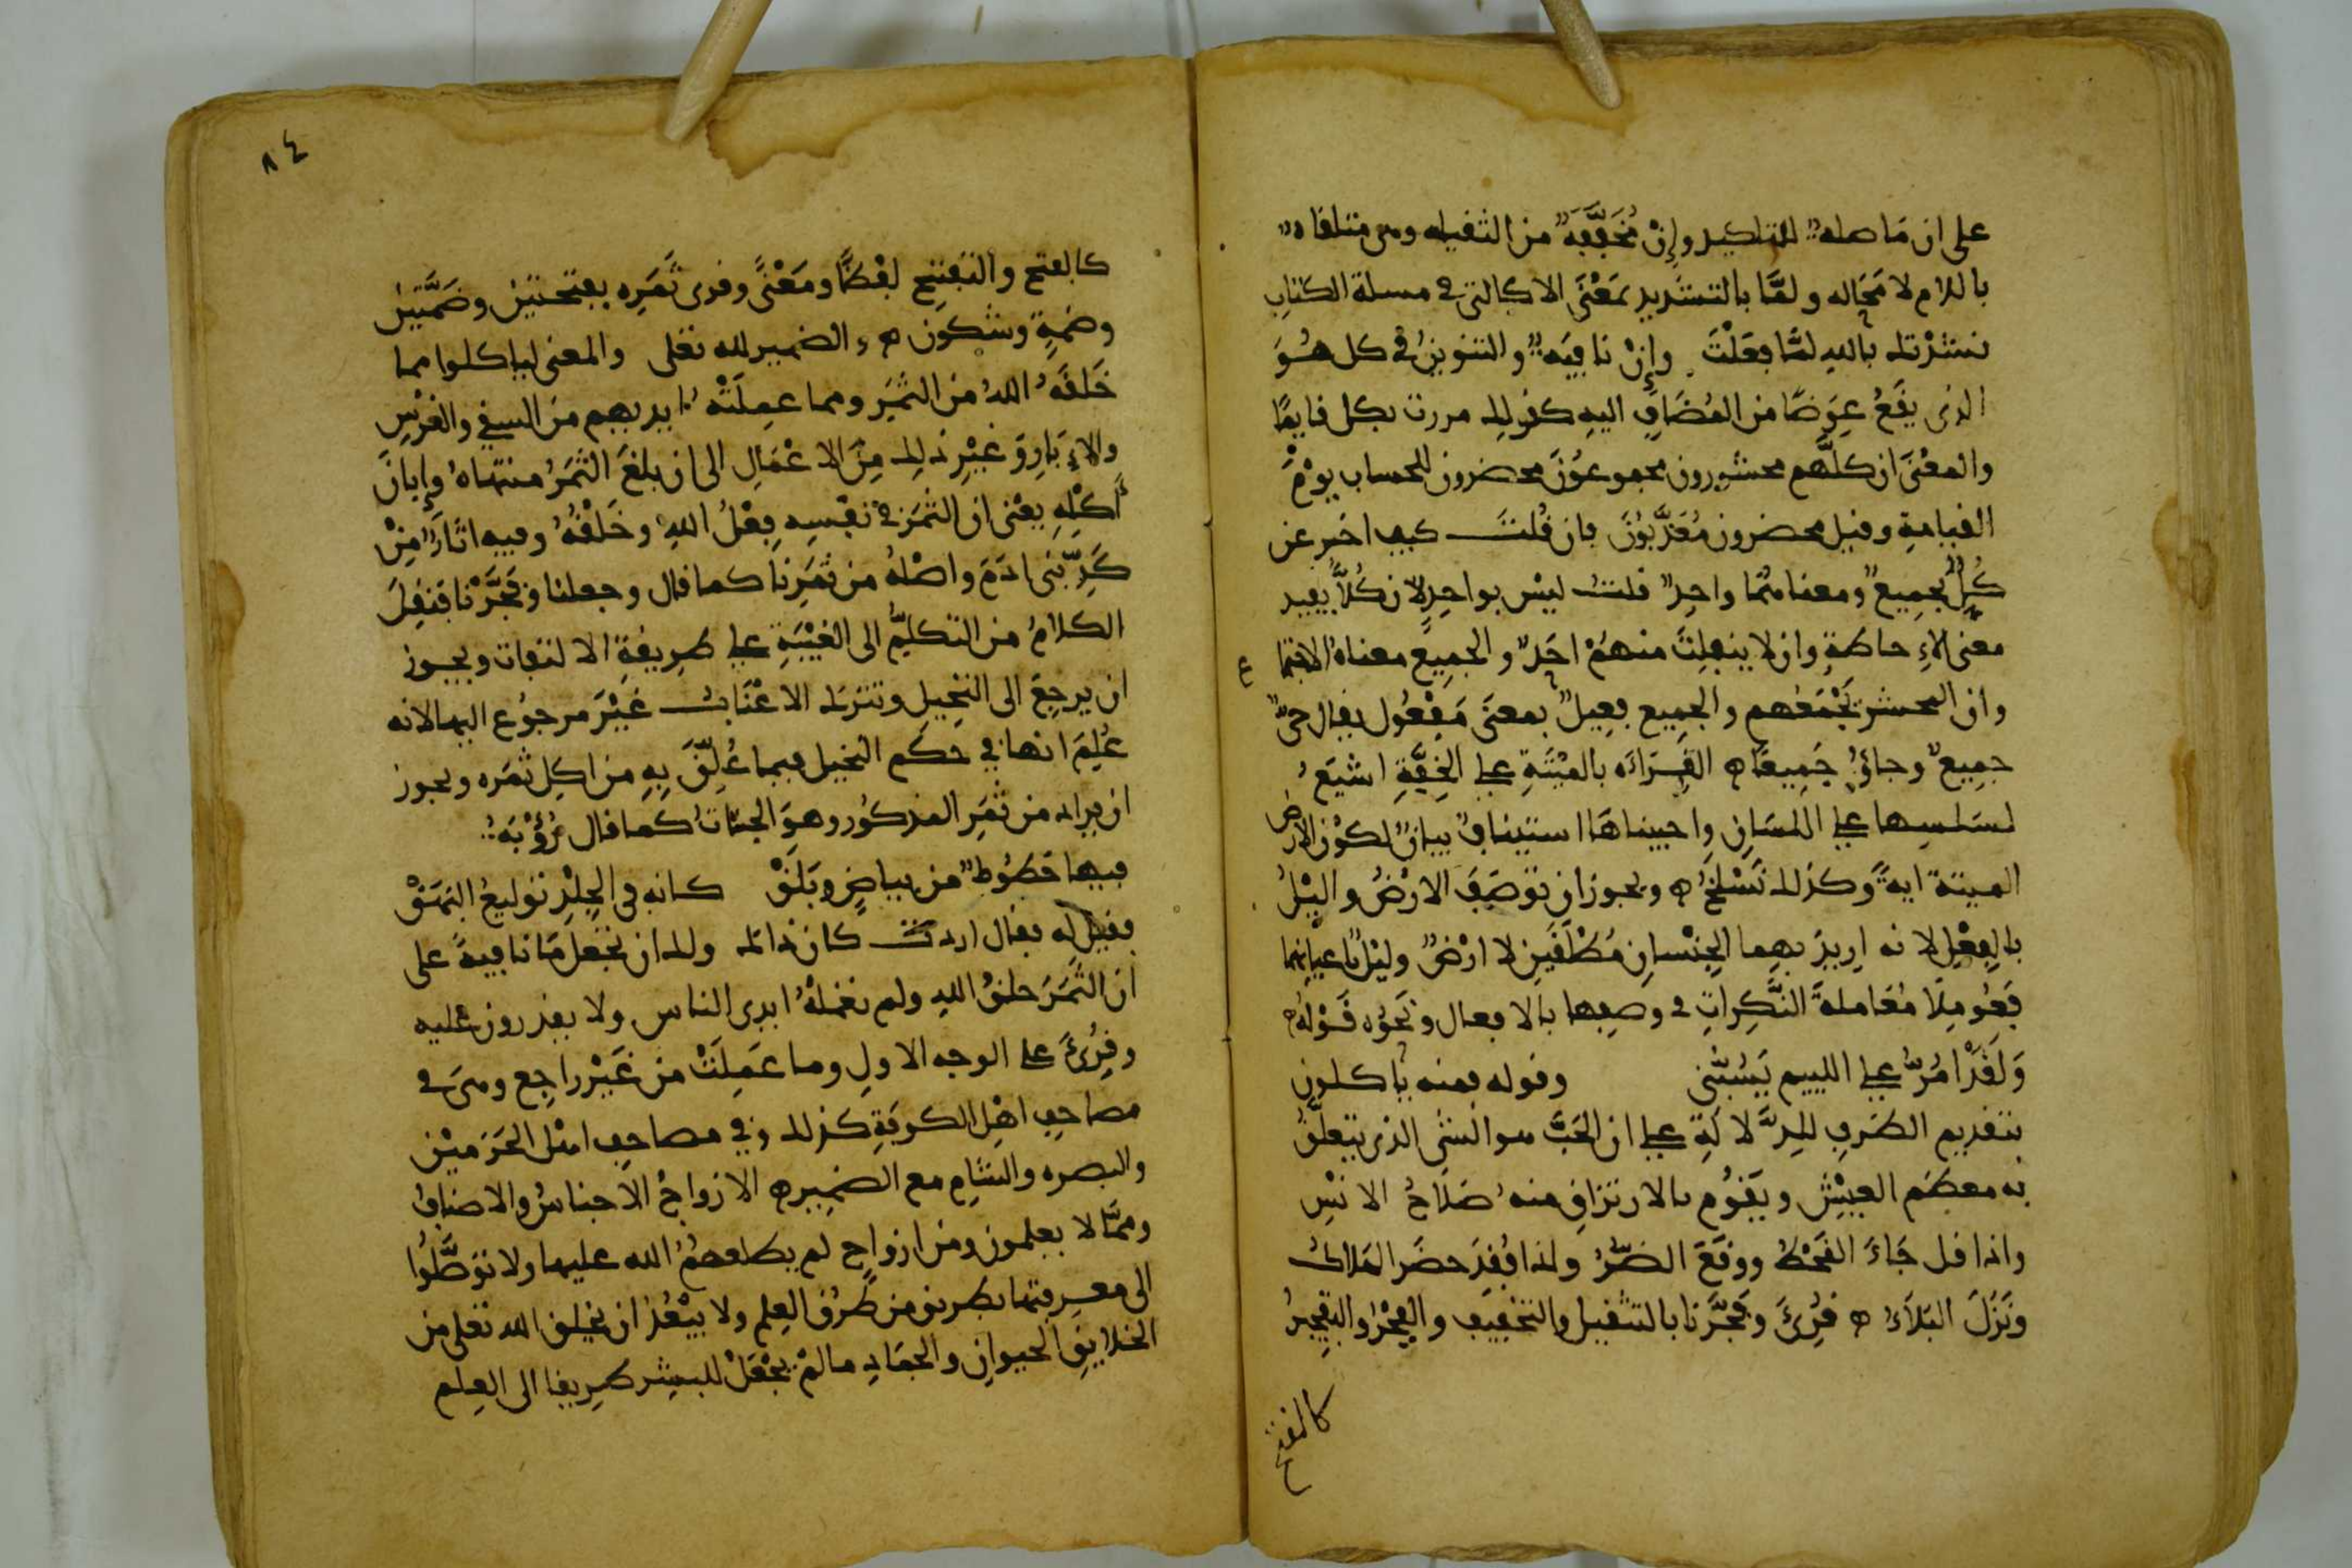 على ان مَا صلة للتاكيد وإنْ مُخَفَّفَةٌ من الثقيله وهى متلقاة
باللام لا مَحَاله ولمَّا بالتشديد بمَعْنَى الا كالتى في مسلة الكتابِ
نشدْتك بالله لمَّا فعَلْتَ وإنْ نافيَه والتنوينُ في كل هُوَ
الذى يقَعُ عِوَضًا من المُضَافِ اليه كقولك مررت بكل قايمًا
والمعْنَى ان كلَّهم محشورون مجموعُونَ محضرون للحساب يوْمَ
القيامةِ وقيل محضرون مُعَذَّبُونَ فان قُلتَ كيف اخبر عن
كُلٍّ بجمِيعٌ ومعناهُمَا واحِدٌ قلتُ ليْس بواحِدٍ لان كُلاً يفيد
معنى الاِحاطةِ وان لا ينفلِتَ منهُمْ احَدٌ والجمِيعُ معناهُ الاجتما
ع
وان المحشر يَجْمَعُهم والجمِيع فعِيلٌ بمعنَى مَفعُول يقال حىٌّ
جمِيعٌ وجاؤُا جَمِيعًا ه القِرَاءَه بالميْتَةِ على الخِفَّةِ اشيَعُ
لسَلسِها على اللسَانِ واحييناهَا استينافٌ بيانٌ لكوْن الارض
الميتة ايةً وكذلك نَسْلَخُ ه ويجوز ان توصَفَ الارْضُ واليْلُ
بالفِعْلِ لانه اريدَ بهما الجِنْسانِ مُطْلَقَيْنِ لا ارْضٌ وليْلٌ باعيانهما
فعُومِلا مُعَاملةَ النَّكِراتِ في وصفِها بالافعال ونَحْوُه قَوْلُه
وَلَقَدْ امُرُّ على الليِيم يَسُبُّنى وقوله فمنه ياكلون
بتقديم الظرفِ للدَّلالَةِ على ان الحَبَّ هو الشى الذى يتعلَّقُ
به معظم العيْشِ ويَقوُم بالارتزاقِ منه صَلاحُ الانْسِ
واذا قل جَاءَ القحْطُ ووقعَ الضرُّ واذا فُقِدَ حضَر الهَلاكُ
ونَزَلَ البَلاَءُ ه قُرِئَ وفَجَّرنا بالتثقيل والتخفِيف والفجْرُ والتفجِيرُ
كالفتح
٨٤
كالفتح والتفتِيح لفظًا ومَعْنًى وقرى ثَمَرِه بفتحتيْن وضَمَّتيْن
وضمةٍ وسُكون ه والضمير لله تعلى والمعنى لياكلوا مما
خَلقَهُ اللهُ من الثمَرِ ومما عمِلَتْه ايديهم من السقي والغرْسِ
والاِبَارِ وغيْرِ ذلك مِنَ الاعْمَالِ الى ان بلغَ الثمَرُ منتهاهُ وإبانَ
أكْلِهِ يعْنى ان الثمَرَ في نفْسِهِ فِعْلُ اللهِ وخَلْقُهُ وفيه اثَارٌ مِنْ
كَدِّ بَنى ادَمَ واصْلُه من ثمَرِنا كما قال وجعلنا وفَجَّرْنا فنقِلَ
الكلامُ من التكلُّمِ الى الغيْبَةِ على طرِيقةِ الالتفات ويجوز
ان يرجِعَ الى النخِيلِ وتترك الاعْنَابُ غيْرَ مرجُوع اليها لانه
عُلِمَ انها في حكْم النخيل فيما عُلِّقَ بِهِ من اكل ثمَره ويجوز
ان يراد من ثمَرِ المذكُور وهوَ الجناتُ كما قال رُؤْبَةُ
فيها خطُوطٌ من بياضٍ وبَلَقْ كانه في الجِلْدِ توليعُ البَهَقْ
فقيل له فقال اردتُ كان ذاك ولك ان تجْعَل مَا نافيةً على
ان الثمَرَ خلقُ اللهِ ولم تعْمَلْهُ ايدى الناس ولا يقدرون عليه
وقرِئَ على الوجه الاولِ وما عَمِلَتْ من غَيْر راجِع وهىَ في
مصاحِفِ اهْلِ الكوفةِ كذلك وفي مصاحِف اهْل الحَرَميْن
والبصره والشامِ مع الضمِير ه الازواجُ الاَجناسُ والاصنافُ
وممَّا لا يعلمون ومن ازواجٍ لم يطلعهُمُ الله عليها ولا توصَّلُوا
الى معرِفتها بطريق من طرُق العِلمِ ولا يبْعُدُ ان يخلق الله تعلى من
الخلايقِ الحيوانِ والجمَادِ مالمْ يجْعَلْ للبشِر طرِيقا الى العِلم